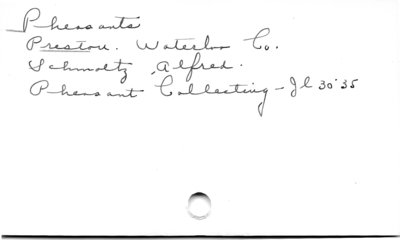 Pheasants
Preston. Waterloo Co.
Schmoltz, Alfred.
Pheasant Collecting - Jl 30'35